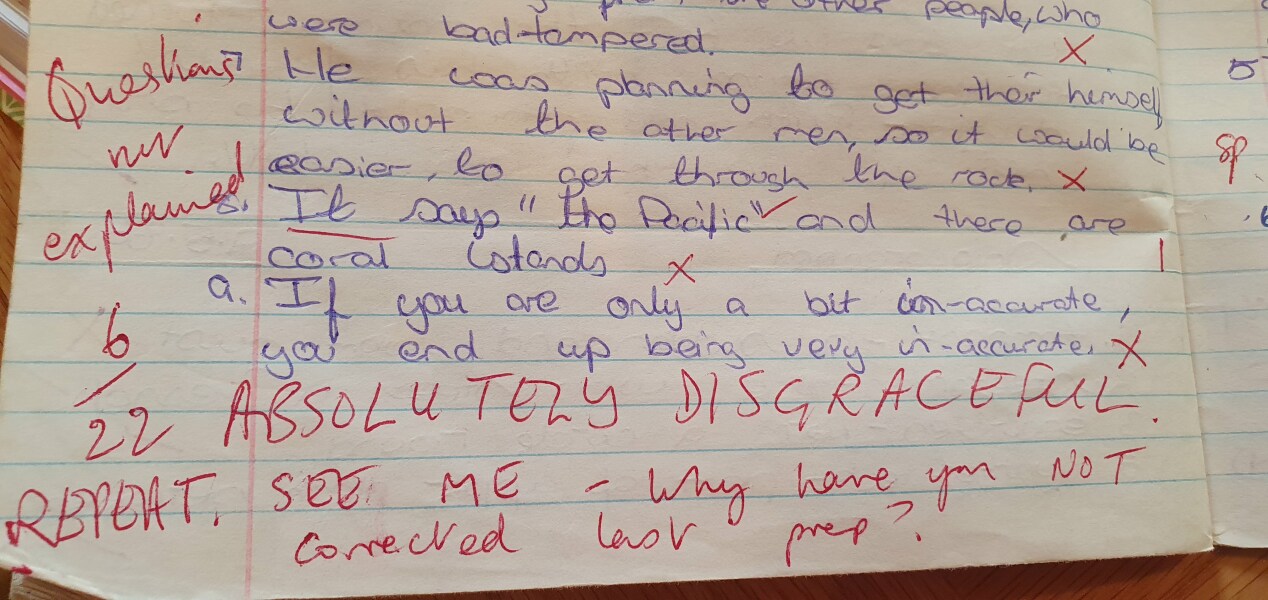 other people, who
were bad-tampered. X
Questions He was planning to get their himself
not without the other men, so it would be
explained easier, to get through the rock. X
8. It says "the Pacific" and there are
coral Islands X 1
9. If you are only a bit in-accurate,
6/22 you end up being very in-accurate. X
ABSOLUTELY DISGRACEFUL.
REPEAT. SEE ME - Why have you NOT
corrected last prep?
5
sp.